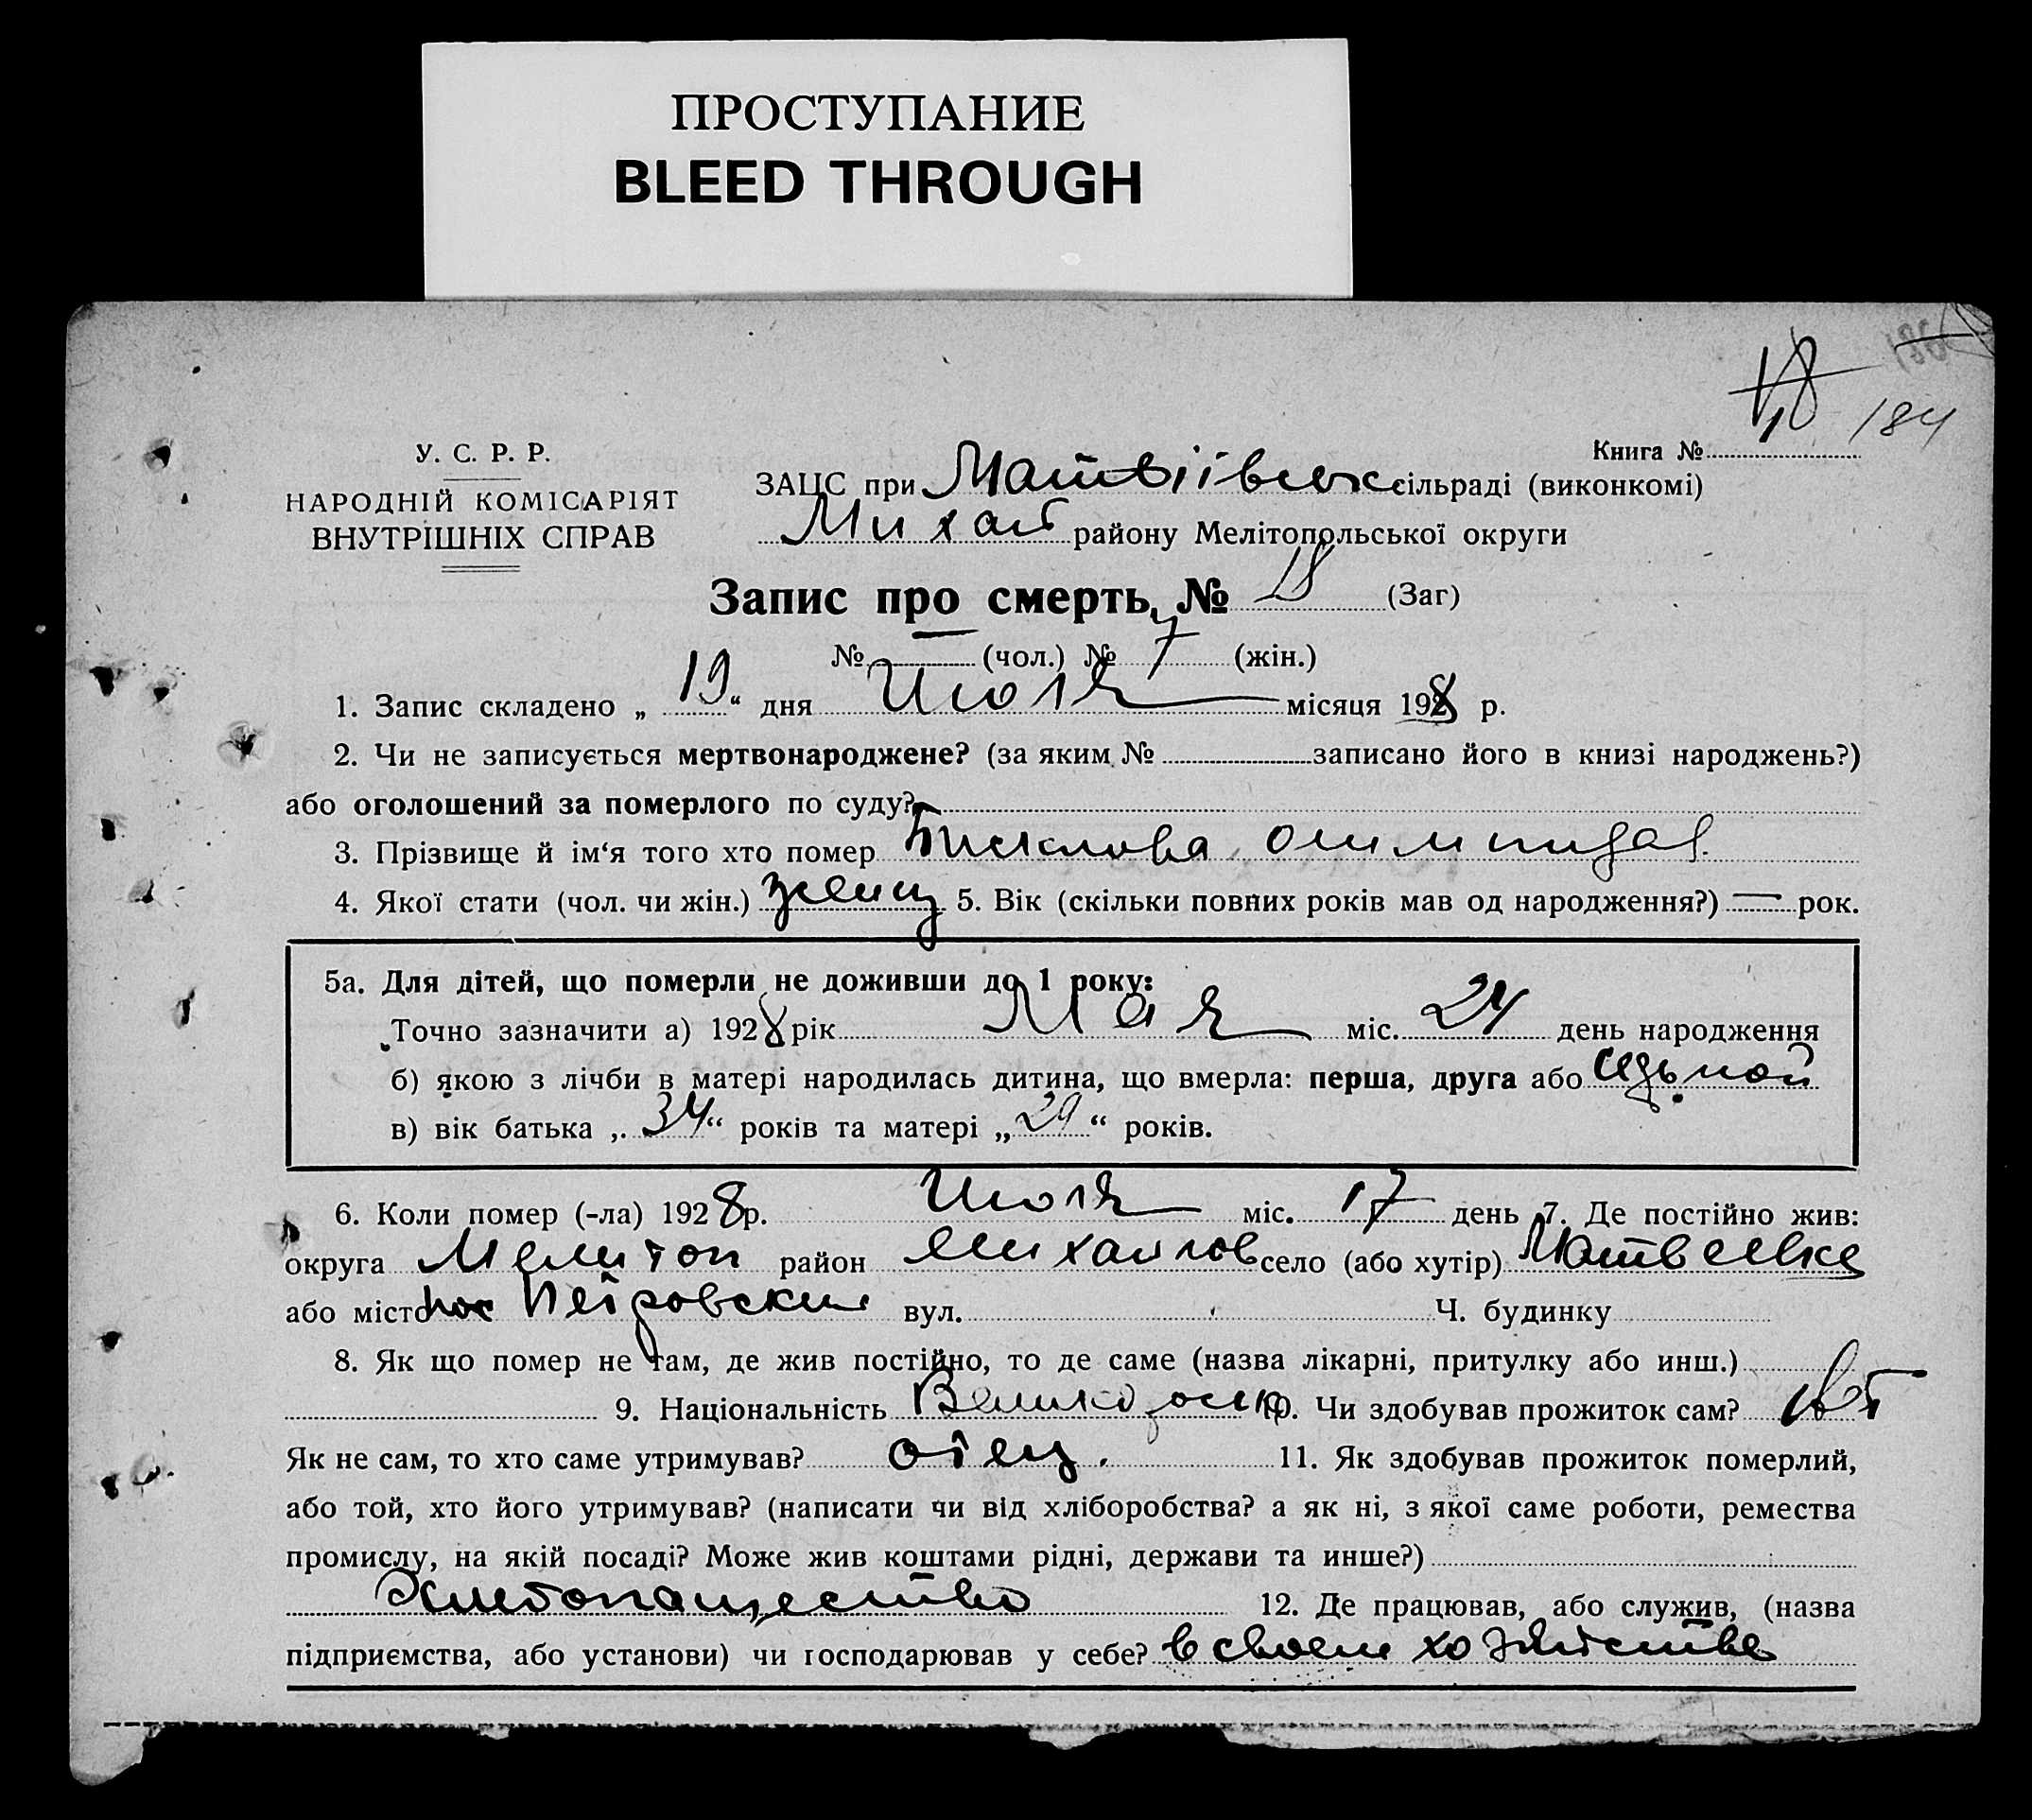 ПРОСТУПАНИЕ
BLEED THROUGH
184
Книга №
У. С. Р. Р.
НАРОДНІЙ КОМІСАРІЯТ
ВНУТРІШНІХ СПРАВ
ЗАЦС при Матвіівськ сільраді (виконкомі)
Михай району Мелітопольської округи
Запис про смерть, № 18 (Заг)
№ — (чол.) № 7 (жін.)
1. Запис складено „ 19 “ дня Июля місяця 1928 р.
2. Чи не записується мертвонароджене? (за яким № записано його в книзі народжень?)
або оголошений за померлого по суду?
3. Прізвище й ім‘я того хто помер
4. Якої стати (чол. чи жін.) 5. Вік (скільки повних років мав од народження?) — рок.
5а. Для дітей, що померли не доживши до 1 року:
Точно зазначити а) 1928 рік Мая міс. 24 день народження
б) якою з лічби в матері народилась дитина, що вмерла: перша, друга або седьмой
в) вік батька „ 34 “ років та матері „ 29 “ років.
6. Коли помер (-ла) 1928 р. Июля міс. 17 день 7. Де постійно жив:
округа Мелитоп район Михайлов село (або хутір) Матвеевке
або місто пос Петровский вул. Ч. будинку
8. Як що помер не там, де жив постійно, то де саме (назва лікарні, притулку або инш.)
9. Національність Великорос 10. Чи здобував прожиток сам?
Як не сам, то хто саме утримував? отец. 11. Як здобував прожиток померлий,
або той, хто його утримував? (написати чи від хліборобства? а як ні, з якої саме роботи, ремества
промислу, на якій посаді? Може жив коштами рідні, держави та инше?)
Хлебопашество 12. Де працював, або служив, (назва
підприємства, або установи) чи господарював у себе? в своем хозяйстве